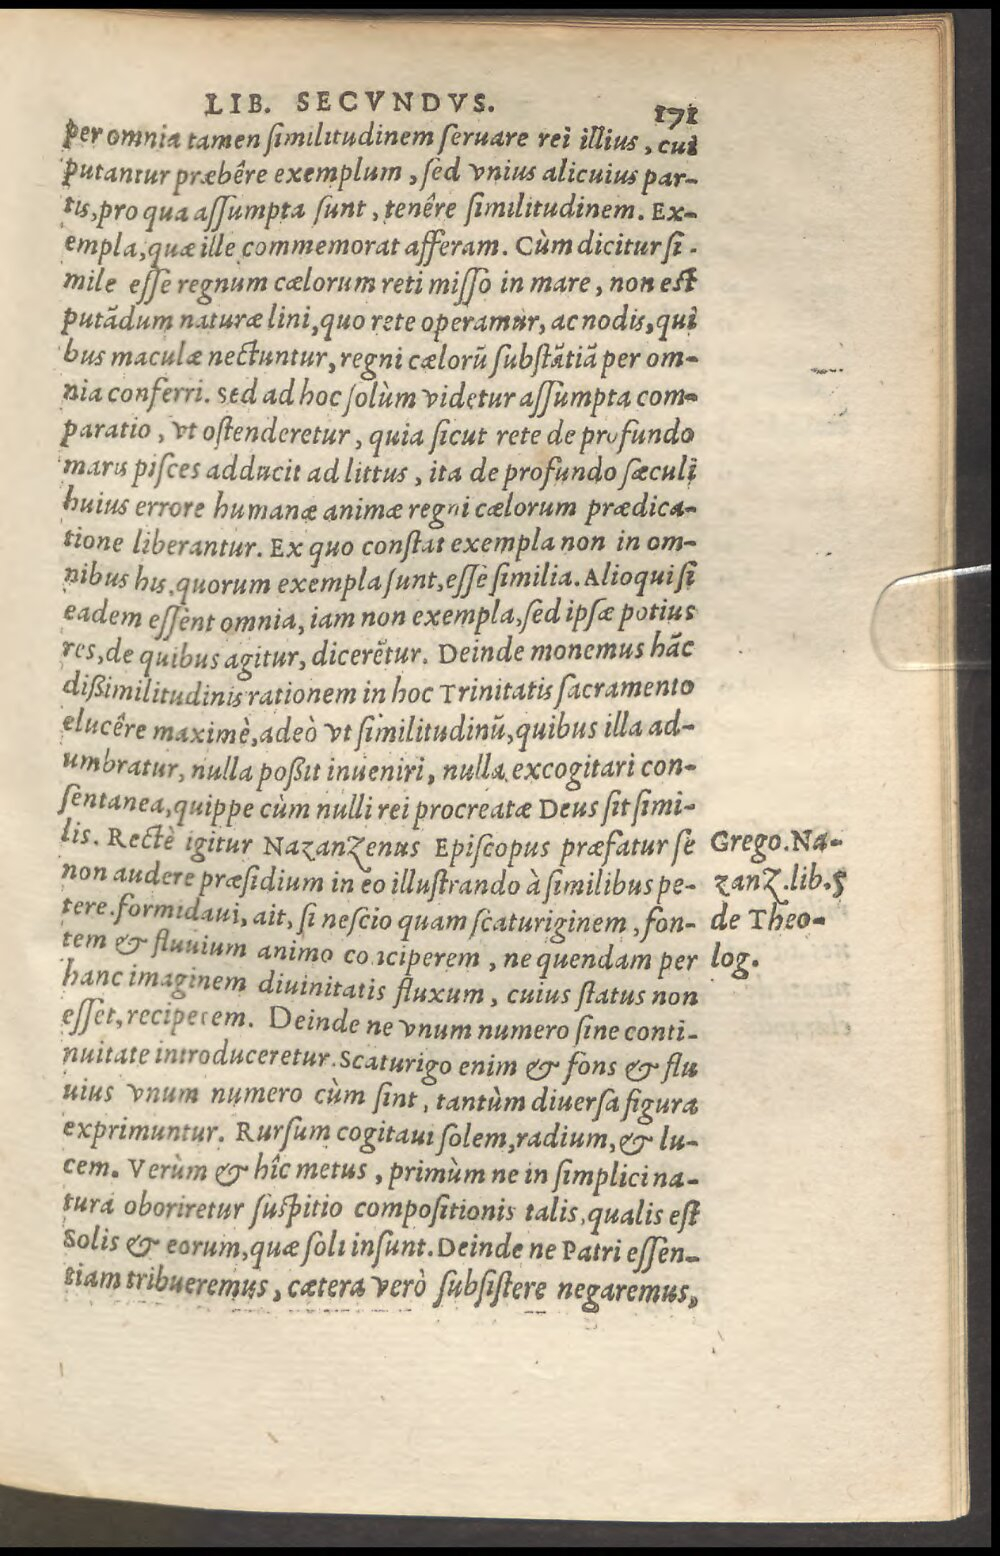 LIB. SECVNDVS. 171
per omnia tamen ſimilitudinem ſeruare rei illius, cui
putantur præbêre exemplum, ſed vnius alicuius par-
tis, pro qua aſſumpta ſunt, tenêre ſimilitudinem. Ex-
empla, quæ ille commemorat afferam. Cùm dicitur ſi-
mile eſſe regnum cælorum reti miſſo in mare, non eſt
putādum naturæ lini, quo rete operamur, ac nodis, qui
bus maculæ nectuntur, regni cælorū ſubſtātiā per om-
nia conferri. Sed ad hoc ſolùm videtur aſſumpta com-
paratio, vt oſtenderetur, quia ſicut rete de profundo
maris piſces adducit ad littus, ita de profundo ſæculi
huius errore humanæ animæ regni cælorum prædica-
tione liberantur. Ex quo conſtat exempla non in om-
nibus his, quorum exempla ſunt, eſſe ſimilia. Alioqui ſi
eadem eſſent omnia, iam non exempla, ſed ipſæ potius
res, de quibus agitur, dicerētur. Deinde monemus hāc
dißimilitudinis rationem in hoc Trinitatis ſacramento
elucêre maximè, adeò vt ſimilitudinū, quibus illa ad-
umbratur, nulla poßit inueniri, nulla excogitari con-
ſentanea, quippe cùm nulli rei procreatæ Deus ſit ſimi-
lis. Rectè igitur Nazanzenus Epiſcopus præfatur ſe
non audere præſidium in eo illuſtrando à ſimilibus pe-
tere. formidaui, ait, ſi neſcio quam ſcaturiginem, fon-
tem & fluuium animo conciperem, ne quendam per
hanc imaginem diuinitatis fluxum, cuius ſtatus non
eſſet, reciperem. Deinde ne vnum numero ſine conti-
nuitate introduceretur. Scaturigo enim & fons & flu
uius vnum numero cùm ſint, tantùm diuerſa figura
exprimuntur. Rurſum cogitaui ſolem, radium, & lu-
cem. Verùm & hîc metus, primùm ne in ſimplici na-
tura oboriretur ſuſpitio compoſitionis talis, qualis eſt
Solis & eorum, quæ ſoli inſunt. Deinde ne Patri eſſen-
tiam tribueremus, cætera verò ſubſiſtere negaremus,
Grego. Na-
zanz. lib. 5
de Theo-
log.